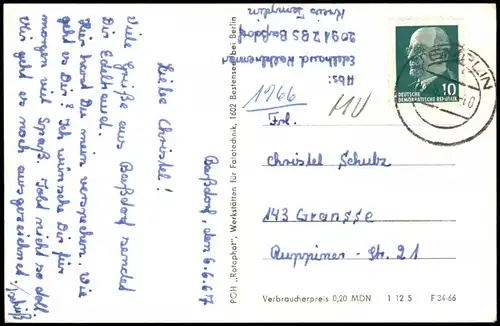 Baßdorf, den 6.6.67
Liebe Christel!
Viele Grüße aus Baßdorf sendet
Dir Edeltraud.
Hier hast Du mein versprechen. Wie
geht es Dir? Ich wünsche Dir für
morgen viel Spaß. Tobt nicht so doll.
Mir geht es noch ausgezeichnet.
Abs:
Edeltraud
2091 ZBS Baßdorf
Kreis Templin
1266
MU
DEUTSCHE
DEMOKRATISCHE REPUBLIK
10
TEMPLIN
Frl.
Christel Schulz
143 Gransee
Ruppiner-Str. 21
PGH „Rotophot", Werkstätten für Fototechnik, 1602 Bestensee bei Berlin
Verbraucherpreis 0,20 MDN 1 12 5 F 34-66